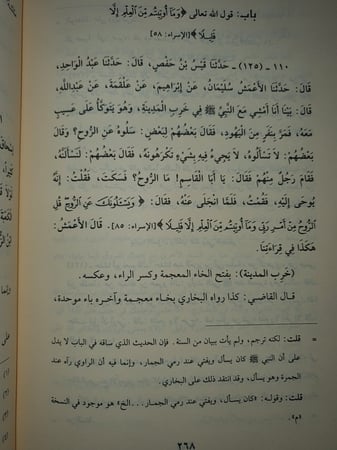 باب: قول الله تعالى ﴿وَمَآ أُوتِيتُم مِّنَ ٱلْعِلْمِ إِلَّا
قَلِيلًا﴾ [الإسراء: ٥٨]
١١٠ - (١٢٥) - حَدَّثَنَا قَيْسُ بْنُ حَفْصٍ، قَالَ: حَدَّثَنَا عَبْدُ الْوَاحِدِ،
قَالَ: حَدَّثَنَا الْأَعْمَشُ سُلَيْمَانُ، عَنْ إِبْرَاهِيمَ، عَنْ عَلْقَمَةَ، عَنْ عَبْدِاللَّهِ،
قَالَ: بَيْنَا أَنَا أَمْشِي مَعَ النَّبِيِّ ﷺ فِي خَرِبِ الْمَدِينَةِ، وَهُوَ يَتَوَكَّأُ عَلَى عَسِيبٍ
مَعَهُ، فَمَرَّ بِنَفَرٍ مِنَ الْيَهُودِ، فَقَالَ بَعْضُهُمْ لِبَعْضٍ: سَلُوهُ عَنِ الرُّوحِ؟ وَقَالَ
بَعْضُهُمْ: لَا تَسْأَلُوهُ، لَا يَجِيءُ فِيهِ بِشَيْءٍ تَكْرَهُونَهُ، فَقَالَ بَعْضُهُمْ: لَنَسْأَلَنَّهُ،
فَقَامَ رَجُلٌ مِنْهُمْ فَقَالَ: يَا أَبَا الْقَاسِمِ! مَا الرُّوحُ؟ فَسَكَتَ، فَقُلْتُ: إِنَّهُ
يُوحَى إِلَيْهِ، فَقُمْتُ، فَلَمَّا انْجَلَى عَنْهُ، فَقَالَ: ﴿وَيَسْـَٔلُونَكَ عَنِ ٱلرُّوحِ قُلِ
ٱلرُّوحُ مِنْ أَمْرِ رَبِّى وَمَآ أُوتِيتُم مِّنَ ٱلْعِلْمِ إِلَّا قَلِيلًا﴾ [الإسراء: ٨٥]. قَالَ الْأَعْمَشُ:
هَكَذَا فِي قِرَاءَتِنَا.
(خَرِب المدينة): بفتح الخاء المعجمة وكسر الراء، وعكسه.
قال القاضي: كذا رواه البخاري بخاء معجمة وآخره باء موحدة،
= قلت: لكنه ترجم، ولم يأت ببيان من السنة. فإن الحديث الذي ساقه في الباب لا يدل
على أن النبي ﷺ كان يسأل ويفتي عند رمي الجمار، وإنما فيه أن الراوي رآه عند
الجمرة وهو يسأل، وقد انتقد ذلك على البخاري.
قلت: وقوله: «كان يسأل، ويفتي عند رمي الجمار... الخ» هو موجود في النسخة
«م».
٢٦٨